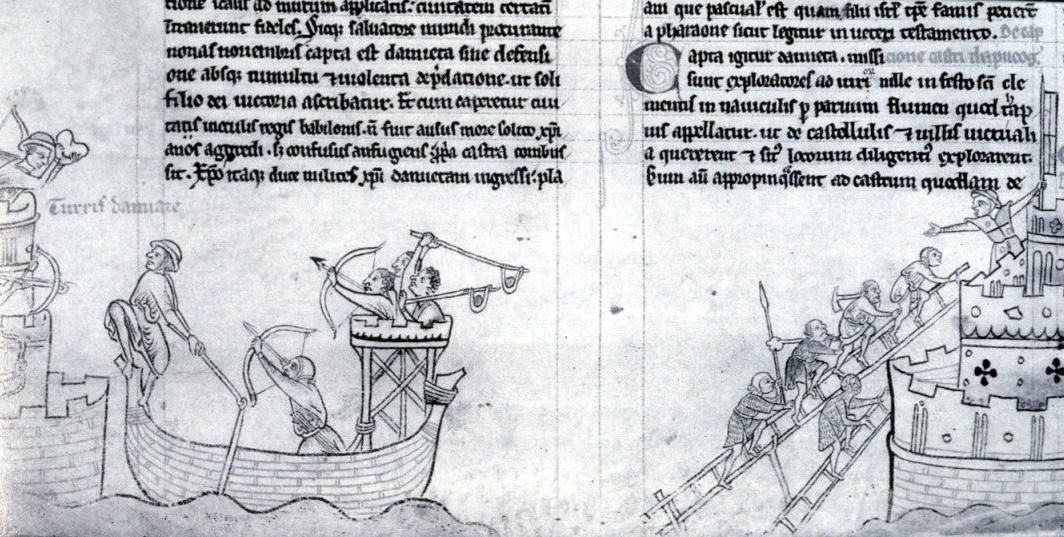 ad murum applicatis. ciuitatem
intrauerunt fideles. Sicq; saluatore mundi procurante
nonas nouembris capta est damieta siue defensi
one absq; tumultu ⁊ uiolenta depdatione. ut soli
filio dei uictoria ascribatur. Et cum caperetur ciui
tatis regis babilonis. n̄ fuit ausus more solito xpi
anos aggredi. s; confusus aufugiens ppa castra combus
sit. Xpo itaq; duce milites xpi damietam ingressi: pla
Turris damiate
am que pascual' est quam filii isrl' tpe famis
a pharaone sicut legitur in ueteri testamento. De cap
Capta igitur damieta. missi cione castri
sunt exploratores ad mille in festo sci cle
mentis in nauiculis p paruum flumen quod tap
nis appellatur. ut de castellulis ⁊ uillis uictuali
a quererent ⁊ sit' locorum diligent' explorarent.
Cum au appropinqssent ad castrum quoddam de